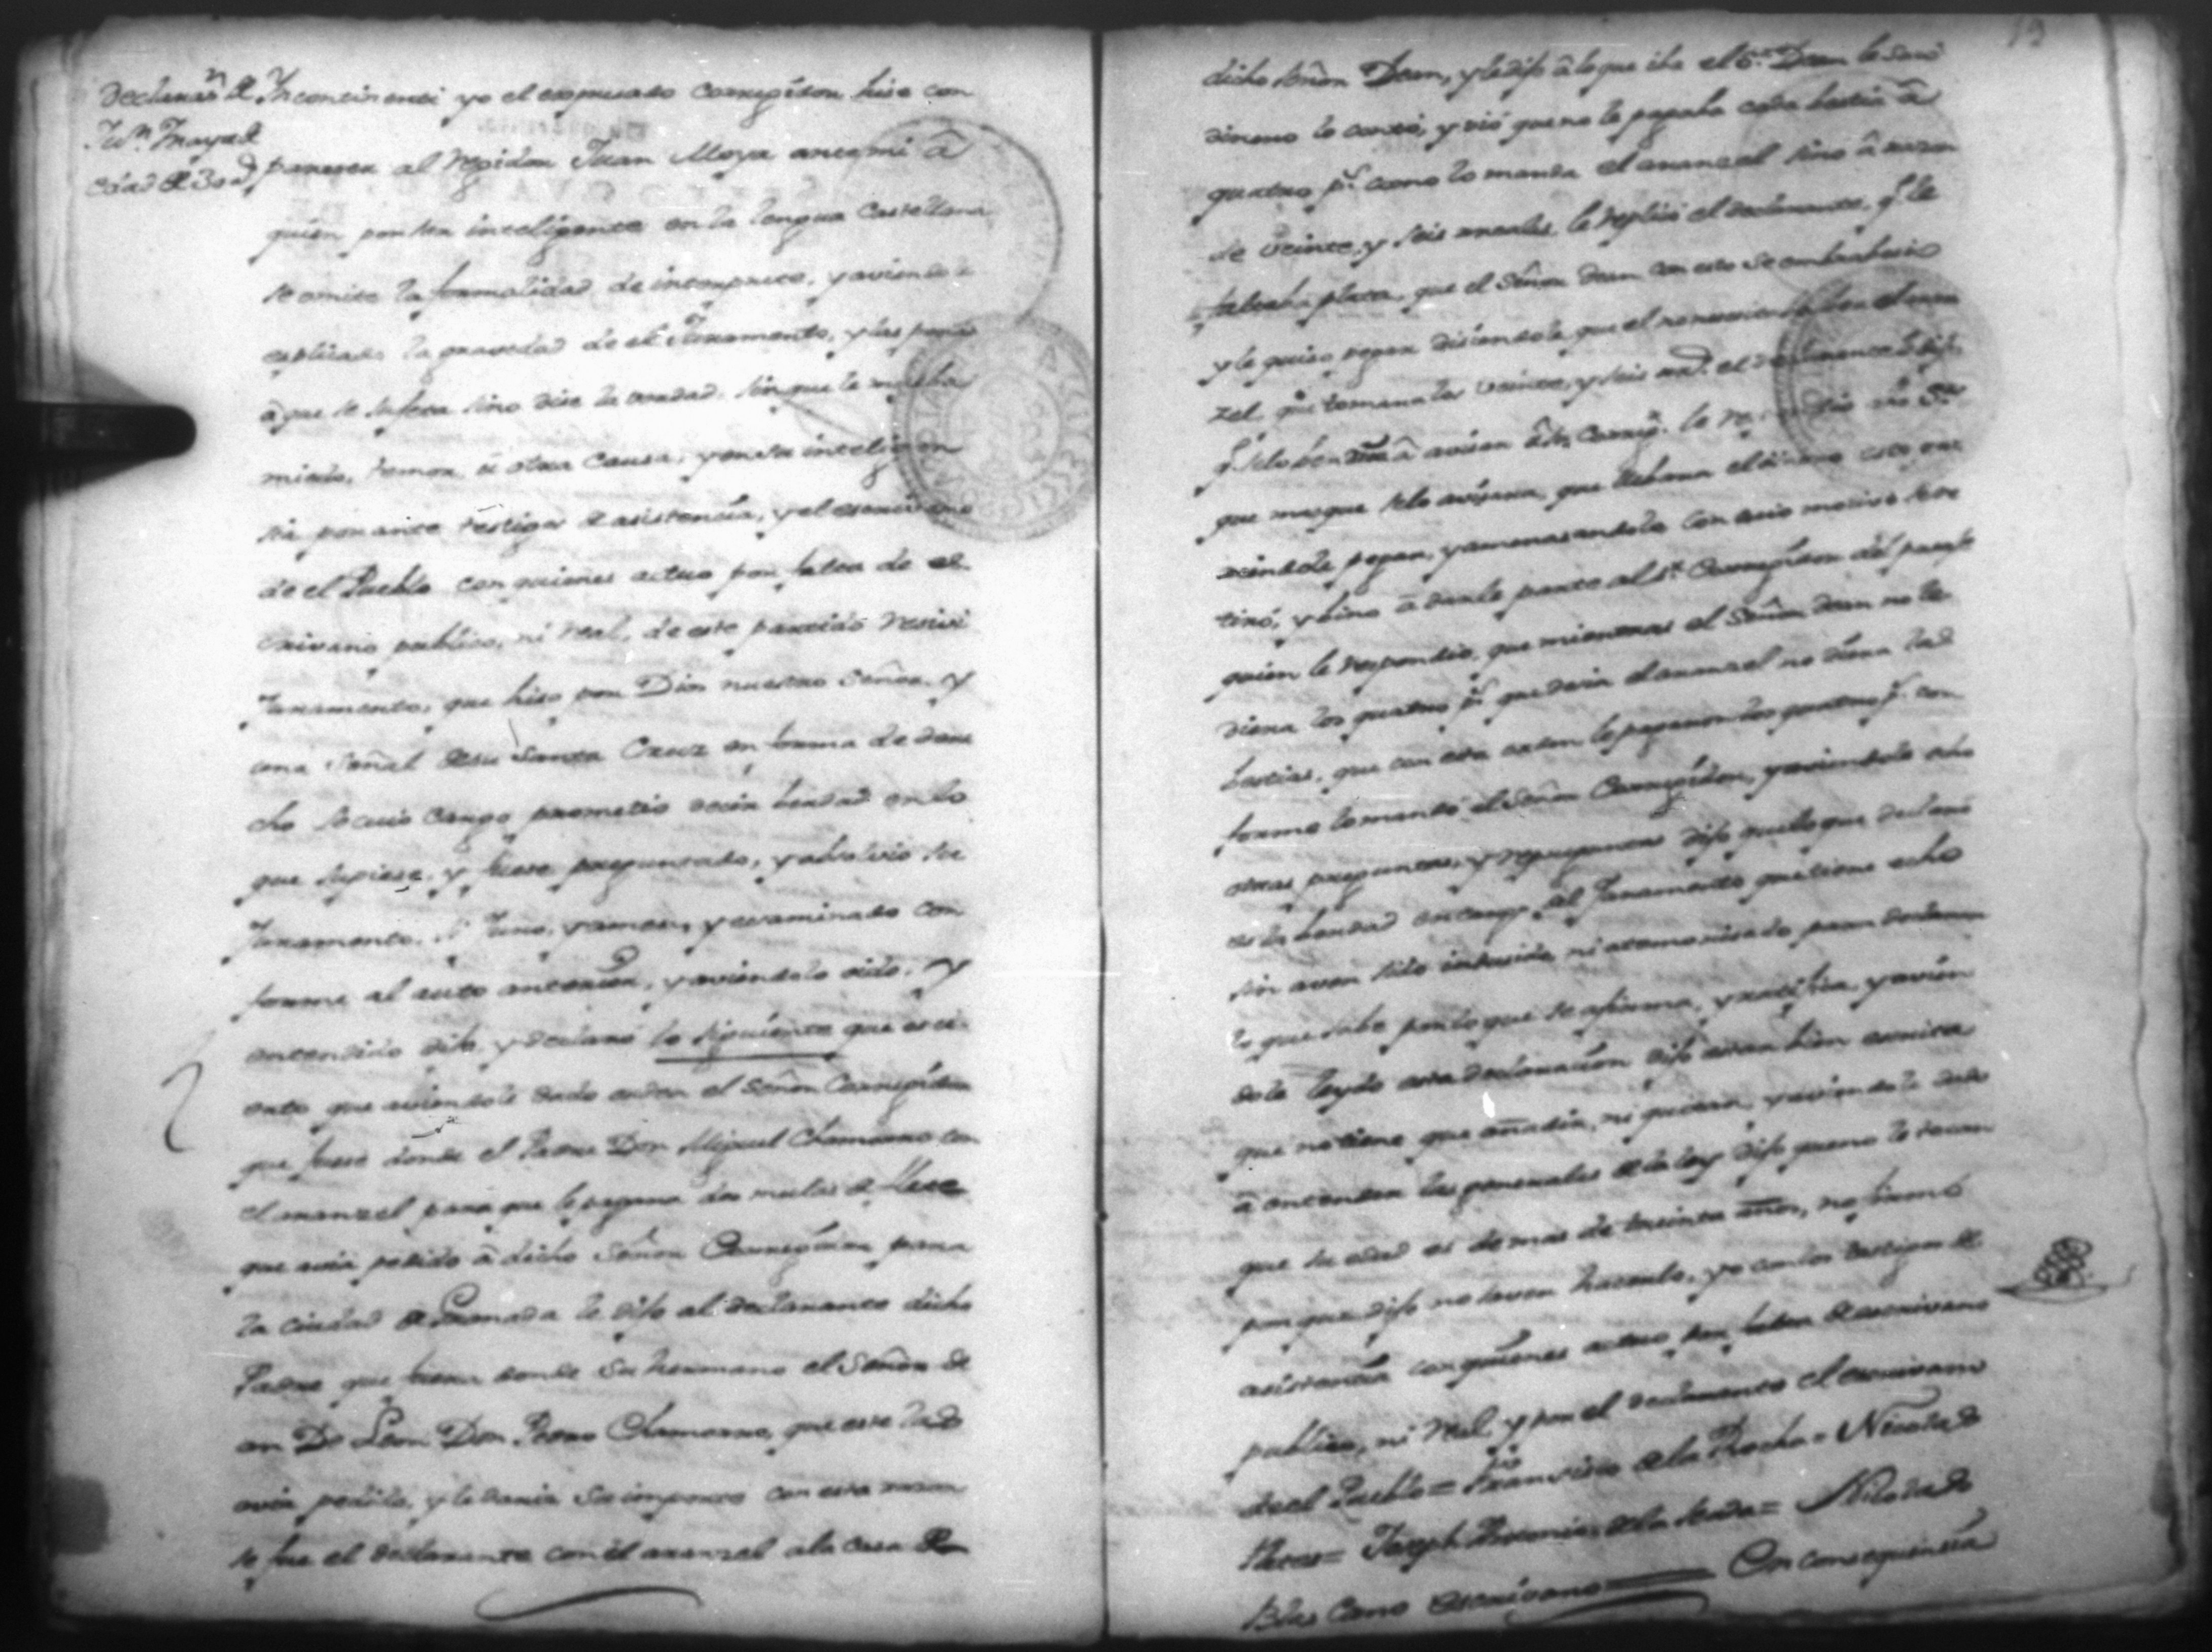 Declaraᵒⁿ de
Juⁿ Maya de
edad de 30 aˢ
Incontinenti yo el expresado Corregidor hise con
parecer al Regidor Juan Moya ante mi â
quien por ser inteligente en la lengua Castellana
se omite la formalidad de interprete, y aviendole
explicado la gravedad de el Juramento, y las penas
a que se sujeta sino dise la verdad, sin que le mueba
miedo, temor, û otra causa, y en su inteligen
sia por ante testigos de asistencia, y el escrivano
de el Pueblo con quienes actuo por falta de es
crivano publico, ni Real, de este partido resivi
Juramento, que hiso por Dios nuestro Señor, y
una Señal de su Santa Cruz en forma de dere
cho so cuio cargo prometio desir berdad en lo
que supiese, y fuere preguntado, y absolvio su
Juramento, si Juro, y amen, y examinado con
forme al auto anterior, y aviendolo oido, y
entendido dijo, y declaro lo siguiente que es ci
erto que aviendole dado orden el Señor Corregidor
que fuese donde el Padre Don Miguel Chamorro con
el aranzel para que le pagara dos mulas de
que avia pedido â dicho Señor Corregidor para
la ciudad de Granada le dijo al declarante dicho
Padre que fuera donde su hermano el Señor De
an De Leon Don Pedro Chamorro, que este las
avia pedido, y le daria su importe con esta razon
se fue el declarante con el aranzel a la casa de
dicho Señor Dean, y le dijo â lo que iba el Sʳ Dean le saco
dinero lo contó, y vió que no le pagaba cada bestia â
quatro pˢ como lo manda el aranzel sino â razon
de veinte, y seis reales, le replicó el declarante, qᵉ le
faltaba plata, que el Señor Dean con esto se
y le quiso pegar disiendole, que el no nesesitaba el aran
zel que tomara los veinte, y seis rˢ el declarante le dijo
qᵉ â avisar â Corregʳ le
que mas que se lo avisara, que llebara el dinero esto
disiendole pegar, y amenasandole con cuio motivo se re
tiró, y bino â darle parte al Sʳ Corregidor del
quien le respondio, que mientras el Señor Dean no le
diera los quatro pˢ que desia el aranzel no diera las
bestias, que con esta orden le pagaron los quatro pˢ con
forme lo mandó el Señor Corregidor, y aviendole echo
otras preguntas, y repreguntas dijo que lo que declaró
es la berdad en cargo del Juramento que tiene echo
sin aver sido indusido, ni atemorisado para declarar
lo que sabe por lo que se afirma, y ratifica, y avien
dole leydo esta declaracion dijo estar bien escrita
que no tiene que añadir, ni quitar, y aviendole dado
â entender las generales de la ley dijo que no le tocan
que su edad es de mas de treinta años, no firmó
por que dijo no saver haserlo, yo con los testigos de
asistencia con quienes actuo por falta de escrivano
publico, ni Real y por el declarante el escrivano
de el Pueblo = Fransisco de la Rocha = Nicolas de
= Joseph Antonio de la = Nicolas de
Blas Cano escrivano En consequencia